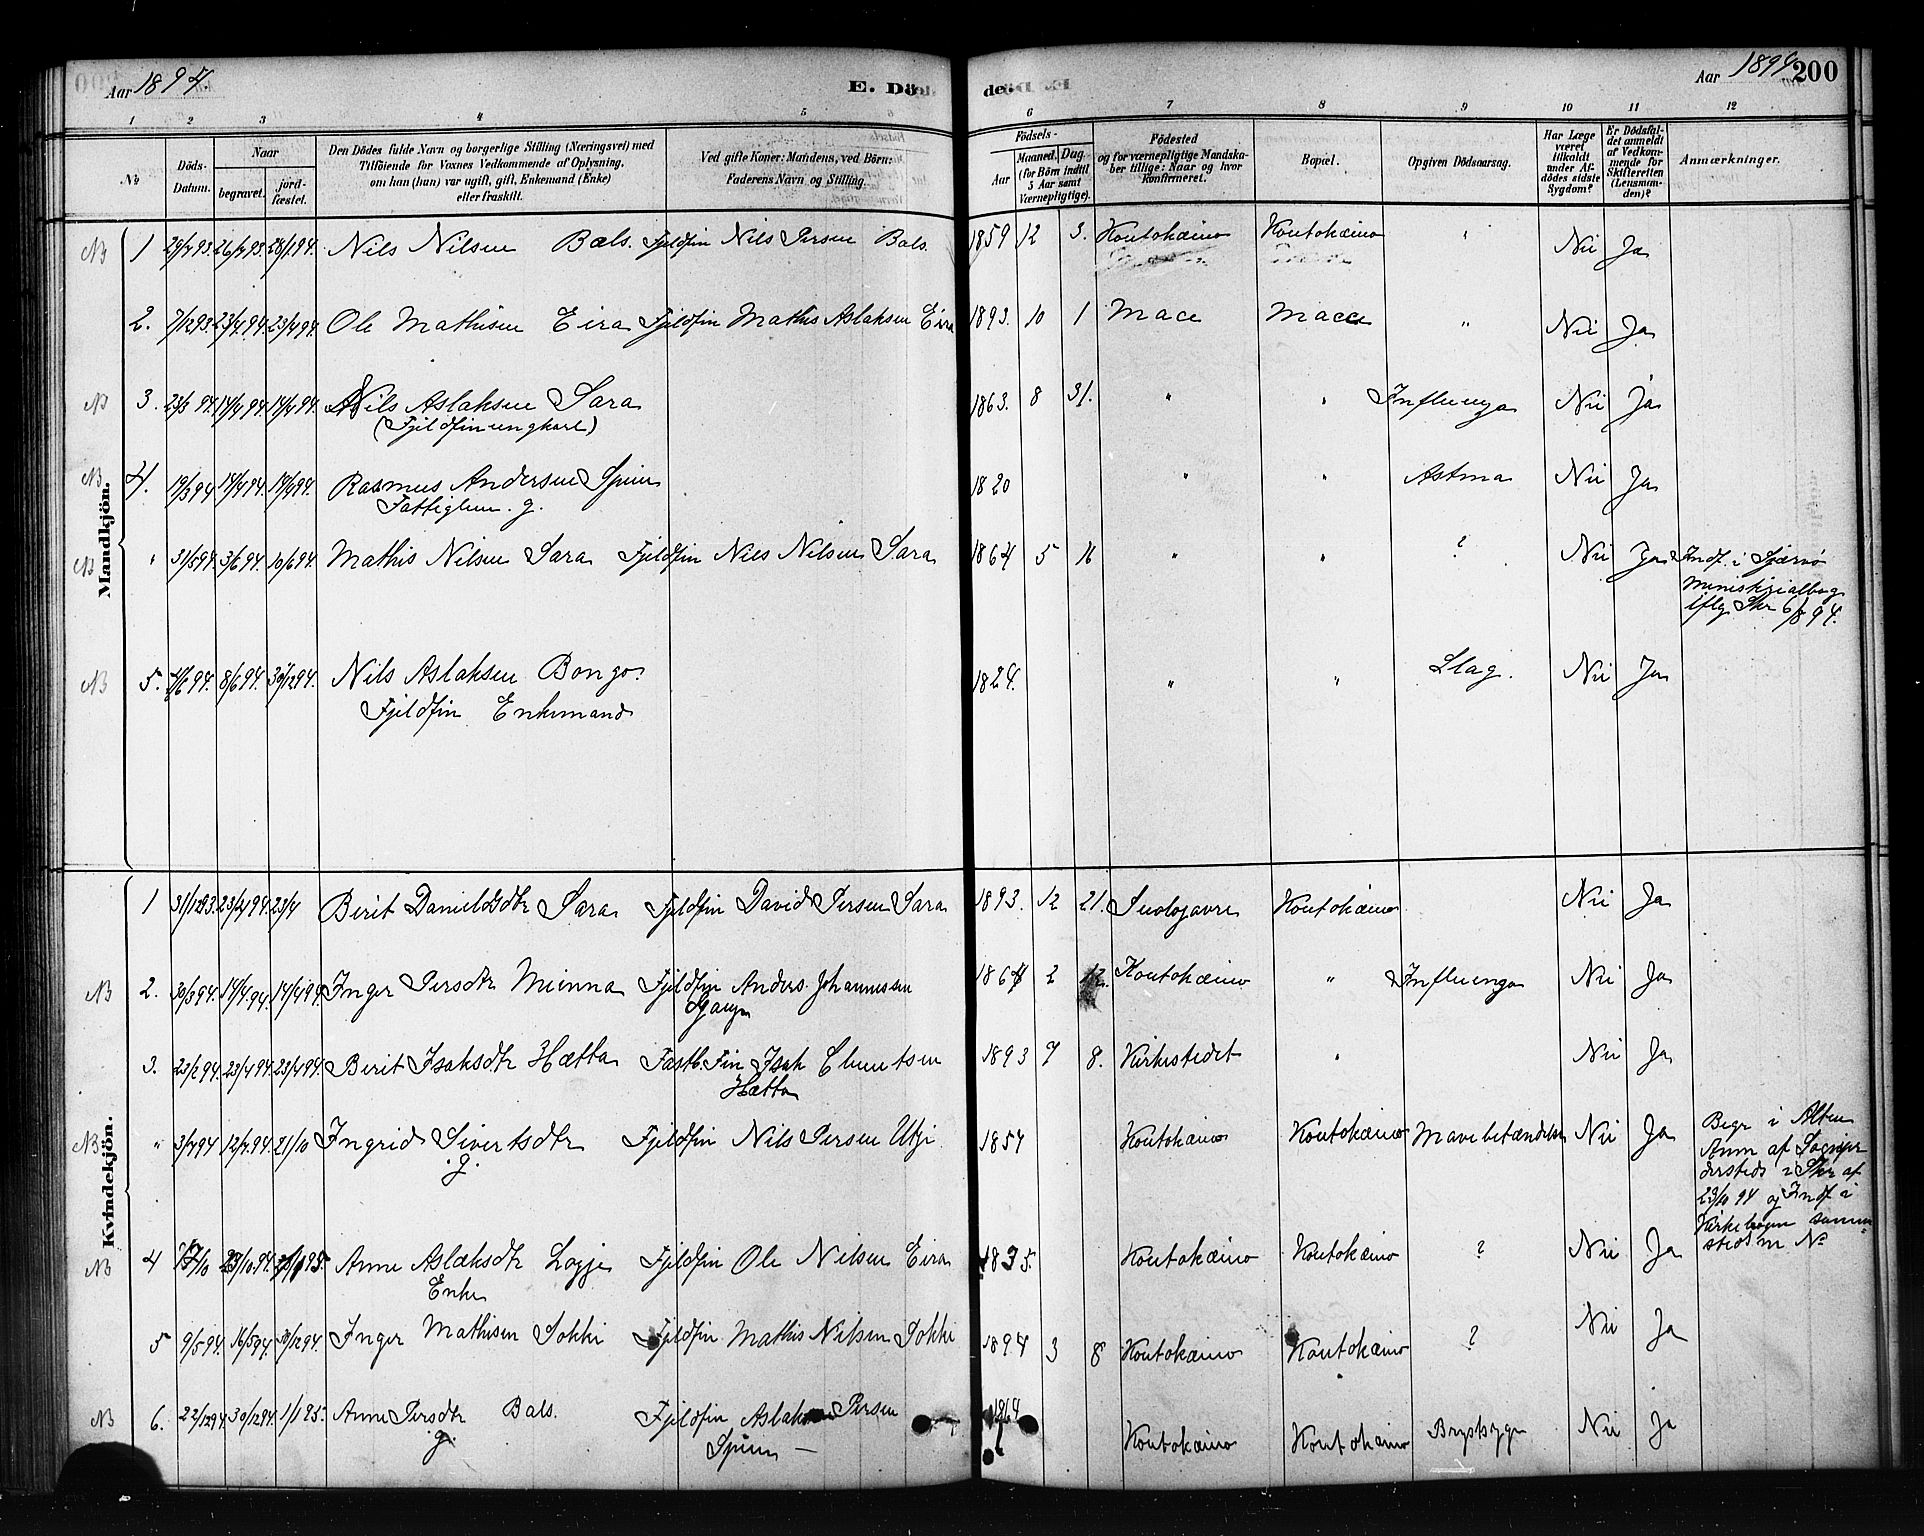 Aar 1894. E. Döde. Aar 1894. 200
1 2 3 4 5 6 7 8 9 10 11 12
No
Döds-Datum.
Naar
begravet.
jordfæstet.
Den Dödes fulde Navn og borgerlige Stilling (Næringsvei) med
Tilföiende for Voxnes Vedkommende af Oplysning,
om han (hun) var ugift, gift, Enkemand (Enke)
eller fraskilt.
Ved gifte Koner: Mandens, ved Börn:
Faderens Navn og Stilling.
Födsels-
Aar
Maaned. Dag.
(for Börn indtil
5 Aar samt
Værnepligtige).
Födested
og for værnepligtige Mandska-
ber tillige: Naar og hvor
konfirmeret.
Bopæl.
Opgiven Dödsaarsag.
Har Læge
været
tilkaldt
under Af-
dödes sidste
Sygdom?
Er Dödsfal-
det anmeldt
af Vedkom-
mende for
Skifteretten
(Lensman-
den)?
Anmærkninger.
Mandkjön.
NB 1 26/4 93. 28/1 94. Nils Nilsen Bals. Fjeldfin Nils Persen Bals. 1859 12 3. Koutokæino Koutokæino " Nei Ja
2. 7/12 93. 23/4 94. 23/4 94. Ole Mathisen Eira Fjeldfin Mathis Aslaksen Eira 1893. 10 1 Mace Mace " Nei Ja
NB 3. 23/3 94. 14/4 94. 14/4 94. Nils Aslaksen Sara 1863. 8 31. " " Influenza Nei Ja
(Fjeldfin ungkarl)
NB 4. 19/3 94 14/4 94. 14/4 94. Rasmus Andersen Spein 1820 " " Astma Nei Ja
Fattiglem. g.
NB " 31/5 94. 3/6 94. 10/6 94. Mathis Nilsen Sara Fjeldfin Nils Nilsen Sara 1864 5 16 " " ? Nei Ja Indf. i Skjærvø
ministerialbog
iflg Skr 6/8 94.
NB 5. 8/6 94. 30/12 94. Nils Aslaksen Bongo. 1824. " " Slag. Nei Ja
Fjeldfin Enkemand
Kvindekjön.
1 31/12 93. 23/4 94. 23/4 Berit Danielsdtr Sara Fjeldfin David Persen Sara 1893. 12 21. Suolojavre Koutokæino Nei Ja
NB 2. 30/3 94. 14/4 94. 14/4 94 Inger Persdtr Mienna Fjeldfin Anders Johannessen 1864 2 12. Koutokæino " Influenza Nei Ja
Gaup
3. 23/2 94. 23/4 94. 23/4 94. Berit Isaksdtr Hætta Fastb. Fin Isak Clemetsen 1893 7 8. Kirkestedet " Nei Ja
Hætta
NB " 3/7 94 12/7 94. 21/10 Ingrid Sivertsdtr Fjeldfin Nils Persen Utsi 1854 Koutokæino Koutokæino Mavebetændelse Nei Ja Begr i Alten
g.
Anm af Sogne-
23/10 94 og Indf i
Kirkebogen samme-
steds m No
NB 4 Anne Aslaksdtr Logje Fjeldfin Ole Nilsen Eira 1835. Koutokæino Koutokæino ? Nei Ja
Enke
5 9/5 94. 16/5 94 30/12 94. Inger Mathisen Sokki Fjeldfin Mathis Nilsen Sokki 1894 3 8 Koutokæino Koutokæino ? Nei Ja
NB 6. 22/12 94 30/12 94. 1/1 95. Anne Persdtr Bals. Fjeldfin Aslak Persen 1864 Koutokæino Koutokæino Brystsyge Nei Ja
g.
Spein